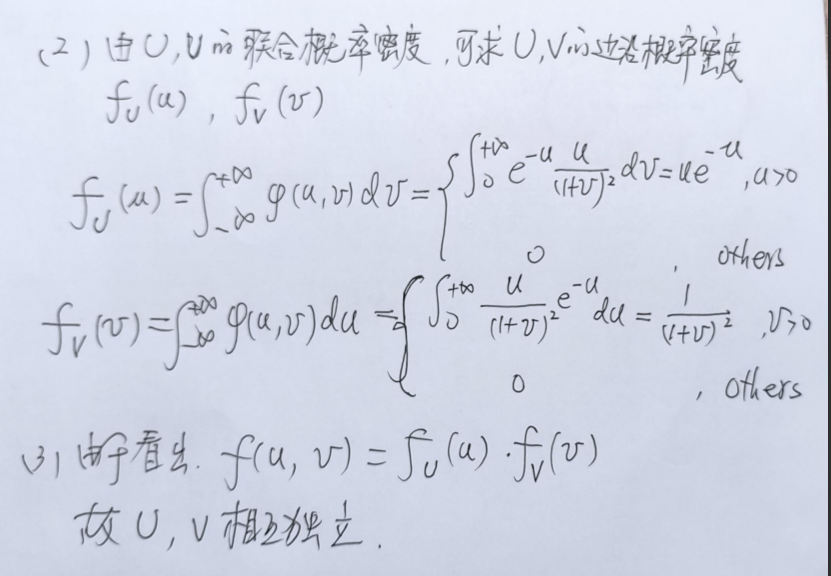 (2) 由U,V的联合概率密度,可求U,V的边沿概率密度
f_U(u), f_V(v)
f_U(u)=∫_{-∞}^{+∞} φ(u,v)dv={∫_0^{+∞} e^{-u} \frac{u}{(1+v)^2} dv=ue^{-u}, u>0
0, others
f_V(v)=∫_{-∞}^{+∞} φ(u,v)du={∫_0^{+∞} \frac{u}{(1+v)^2} e^{-u} du=\frac{1}{(1+v)^2}, v>0
0, others
(3) 看出. f(u,v)=f_U(u)·f_V(v)
故U,V相互独立.